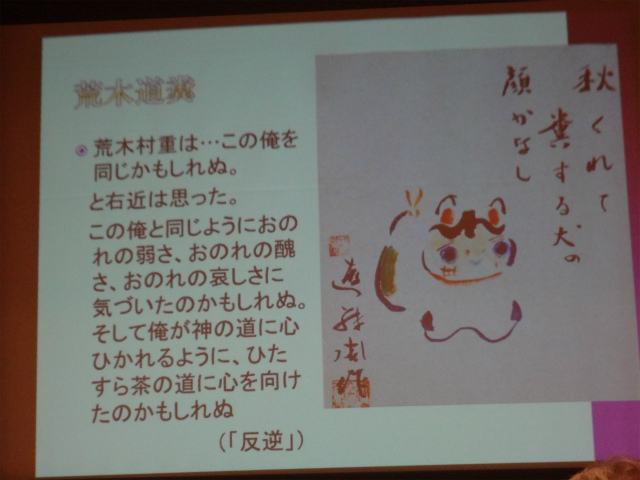 荒木道糞
荒木村重は…この俺を
同じかもしれぬ。
と右近は思った。
この俺と同じようにおの
れの弱さ、おのれの醜
さ、おのれの哀しさに
気づいたのかもしれぬ。
そして俺が神の道に心
ひかれるように、ひた
すら茶の道に心を向け
たのかもしれぬ
（「反逆」）
秋くれて
糞する犬の
顔かなし
遠藤周作